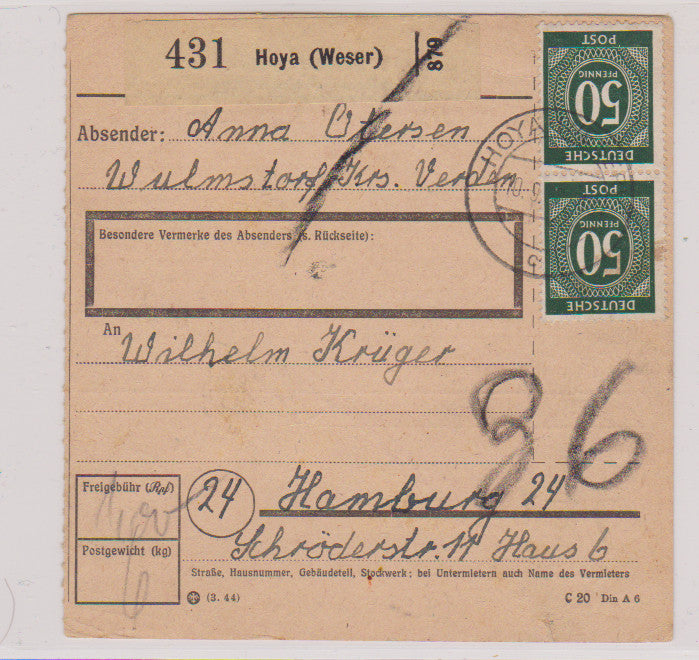 431 Hoya (Weser) 879
DEUTSCHE POST
50 PFENNIG
DEUTSCHE POST
50 PFENNIG
HOYA
Absender: Anna Otersen
Wulmstorf Krs. Verden
Besondere Vermerke des Absenders (s. Rückseite):
An
Wilhelm Krüger
36
Freigebühr (Rpf)
24 Hamburg 24
Postgewicht (kg)
6
Schröderstr. 11 Haus 6
Straße, Hausnummer, Gebäudeteil, Stockwerk; bei Untermietern auch Name des Vermieters
(3. 44)
C 20 Din A 6